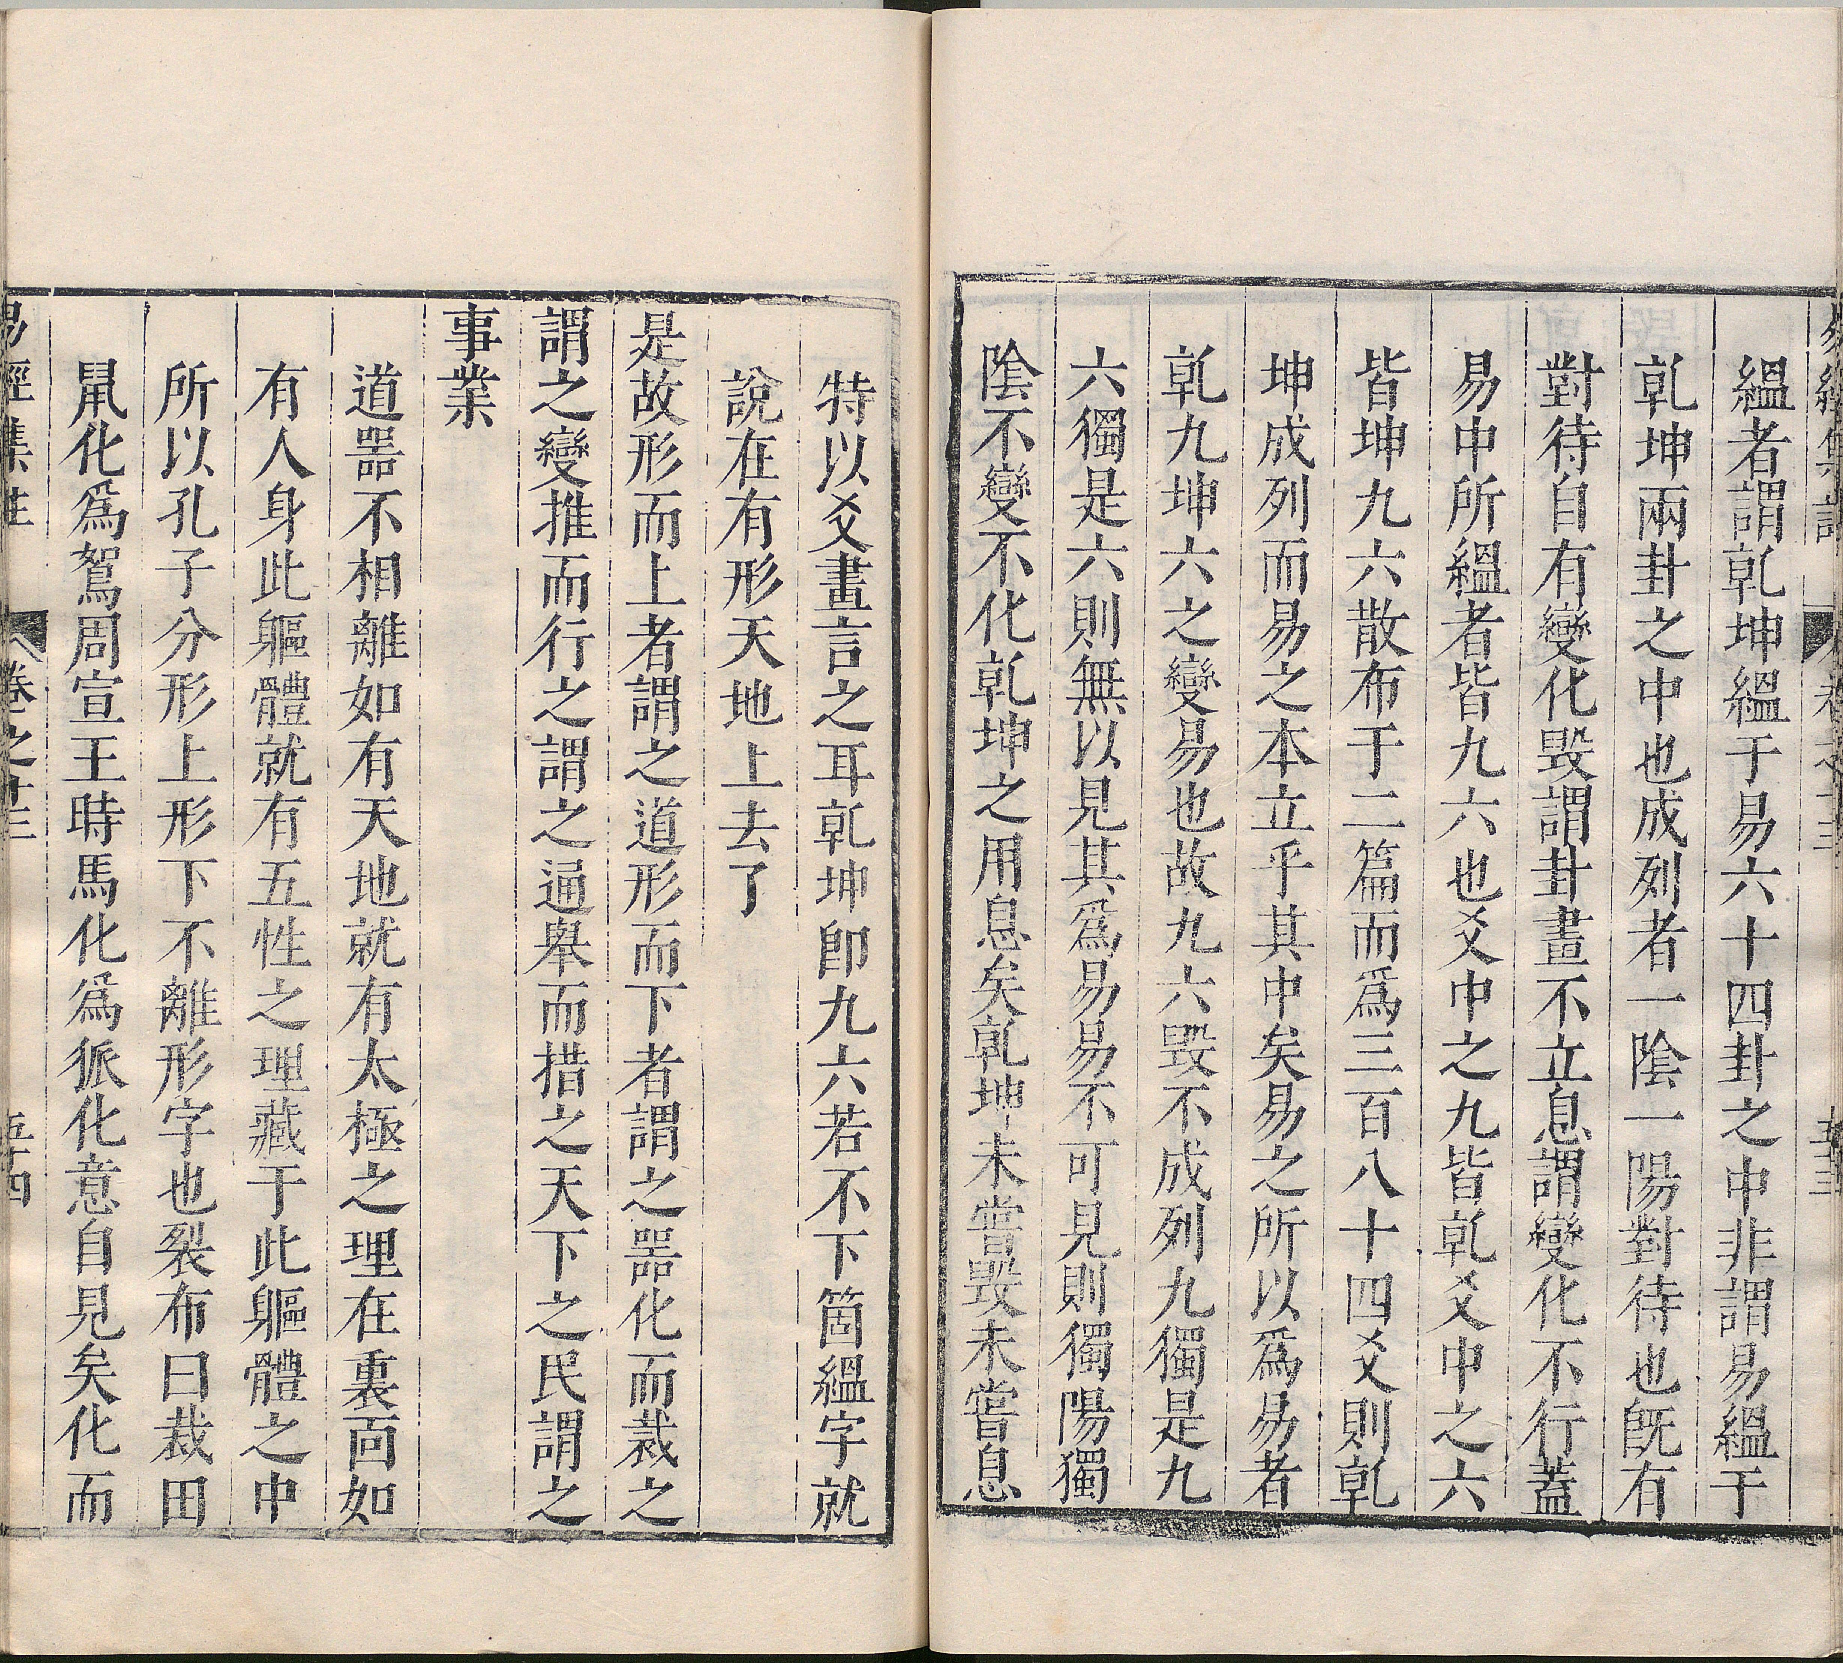 縕者謂乹坤縕于易六十四卦之中非謂易縕于
乹坤兩卦之中也成列者一陰一陽對待也旣有
對待自有變化毀謂卦畫不立息謂變化不行蓋
易中所縕者皆九六也爻中之九皆乹爻中之六
皆坤九六散布于二篇而爲三百八十四爻則乹
坤成列而易之本立乎其中矣易之所以爲易者
乹九坤六之變易也故九六毀不成列九獨是九
六獨是六則無以見其爲易易不可見則獨陽獨
陰不變不化乹坤之用息矣乹坤未嘗毀未嘗息
特以爻畫言之耳乹坤卽九六若不下箇縕字就
說在有形天地上去了
是故形而上者謂之道形而下者謂之噐化而裁之
謂之變推而行之謂之通舉而措之天下之民謂之
事業
道噐不相離如有天地就有太極之理在裏面如
有人身此軀體就有五性之理藏于此軀體之中
所以孔子分形上形下不離形字也裂布曰裁田
鼠化爲鴽周宣王時馬化爲狐化意自見矣化而
易經集註 卷之十三 五十四